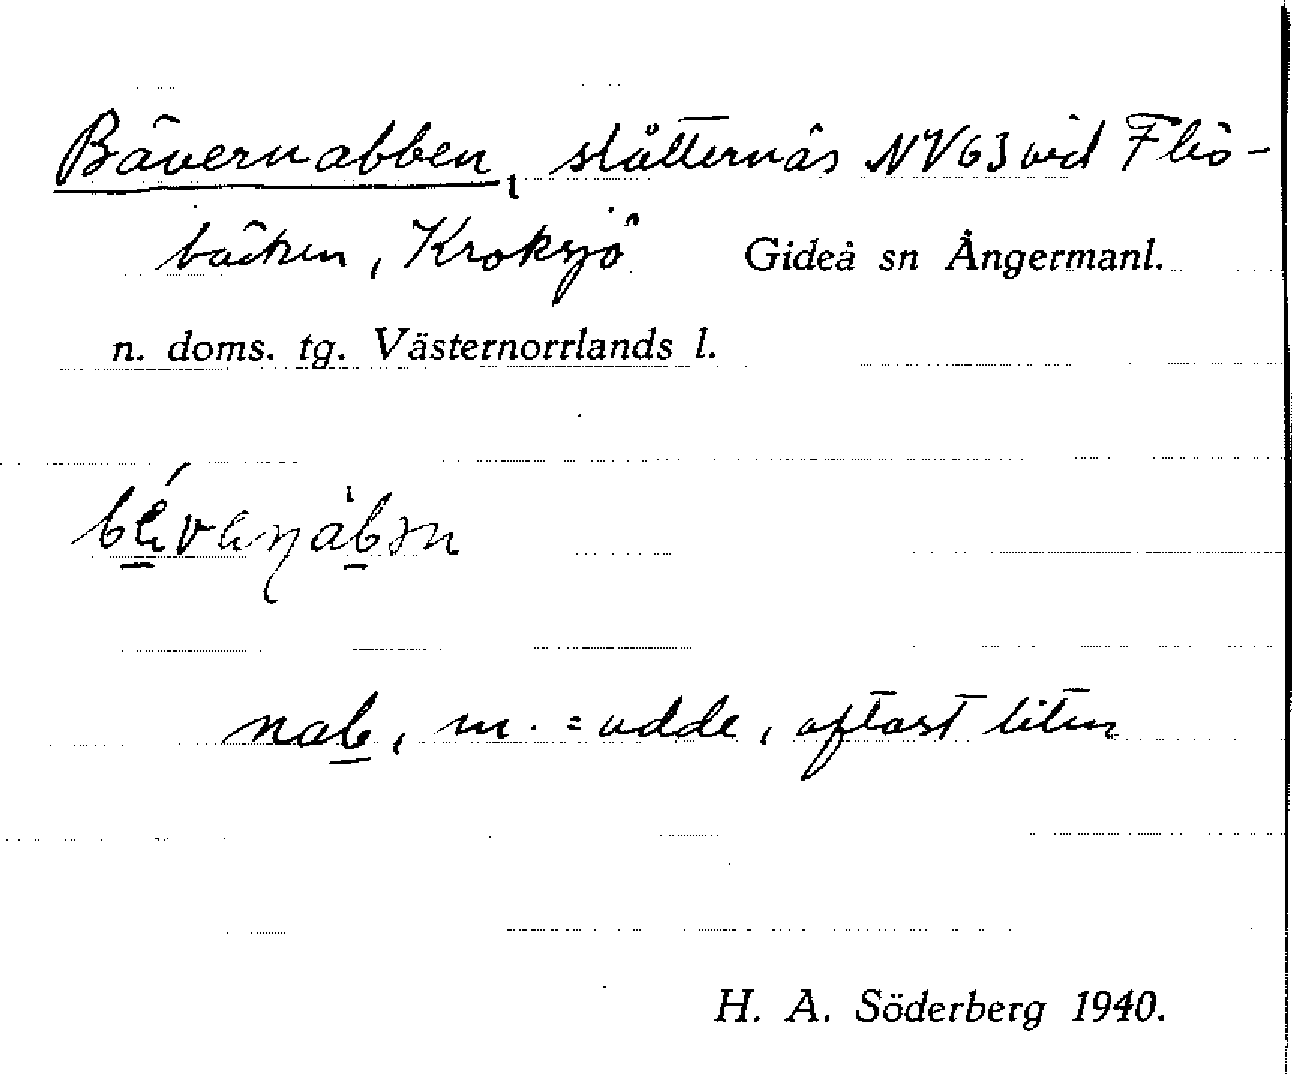 Bävernabben, slåtternäs NV63 vid Fliö-
bäcken, Kroksjö Gideå sn Ångermanl.
n. doms. tg. Västernorrlands l.
nab, m. = udde, oftast liten
H. A. Söderberg 1940.